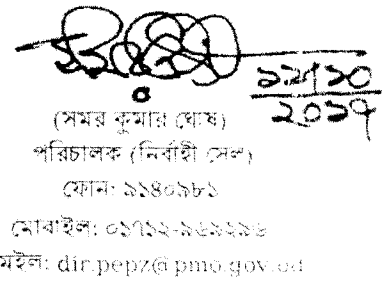 ১২/১০
২০১৭
(সমর কুমার ঘোষ)
পরিচালক (নির্বাহী সেল)
ফোন: ৯১৪০৯৮১
মোবাইল: ০১৭১২-৯৬৯২৯৬
মইল: dir.pepz@pmo.gov.bd